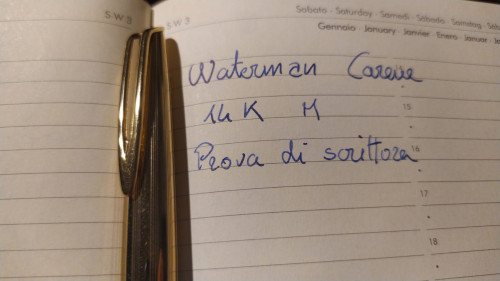 SW3 SW3 Sabato · Saturday · Samedi · Sábado · Samstag · Sá
Gennaio · January · Janvier · Enero · Januar · Ja
Waterman Carène
14 K M
15
Prova di scrittura
16
17
18